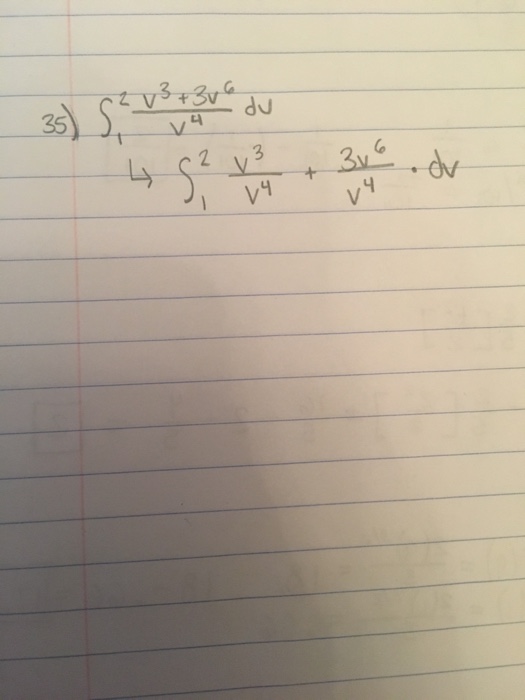 35) ∫₁² (v³ + 3v⁶)/v⁴ dv
↳ ∫₁² v³/v⁴ + 3v⁶/v⁴ · dv